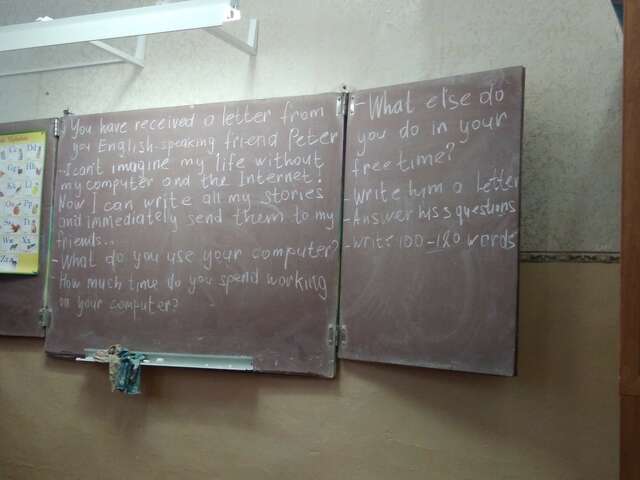 You have received a letter from
you English-speaking friend Peter
-I can't imagine my life without
my computer and the Internet!
Now I can write all my stories
and immediately send them to my
friends..
-What do you use your computer?
How much time do you spend working
on your computer?
-What else do
you do in your
free time?
-Write him a letter
-Answer his 3 questions
-Write 100-120 words
Dd
Pp
Ww Xx